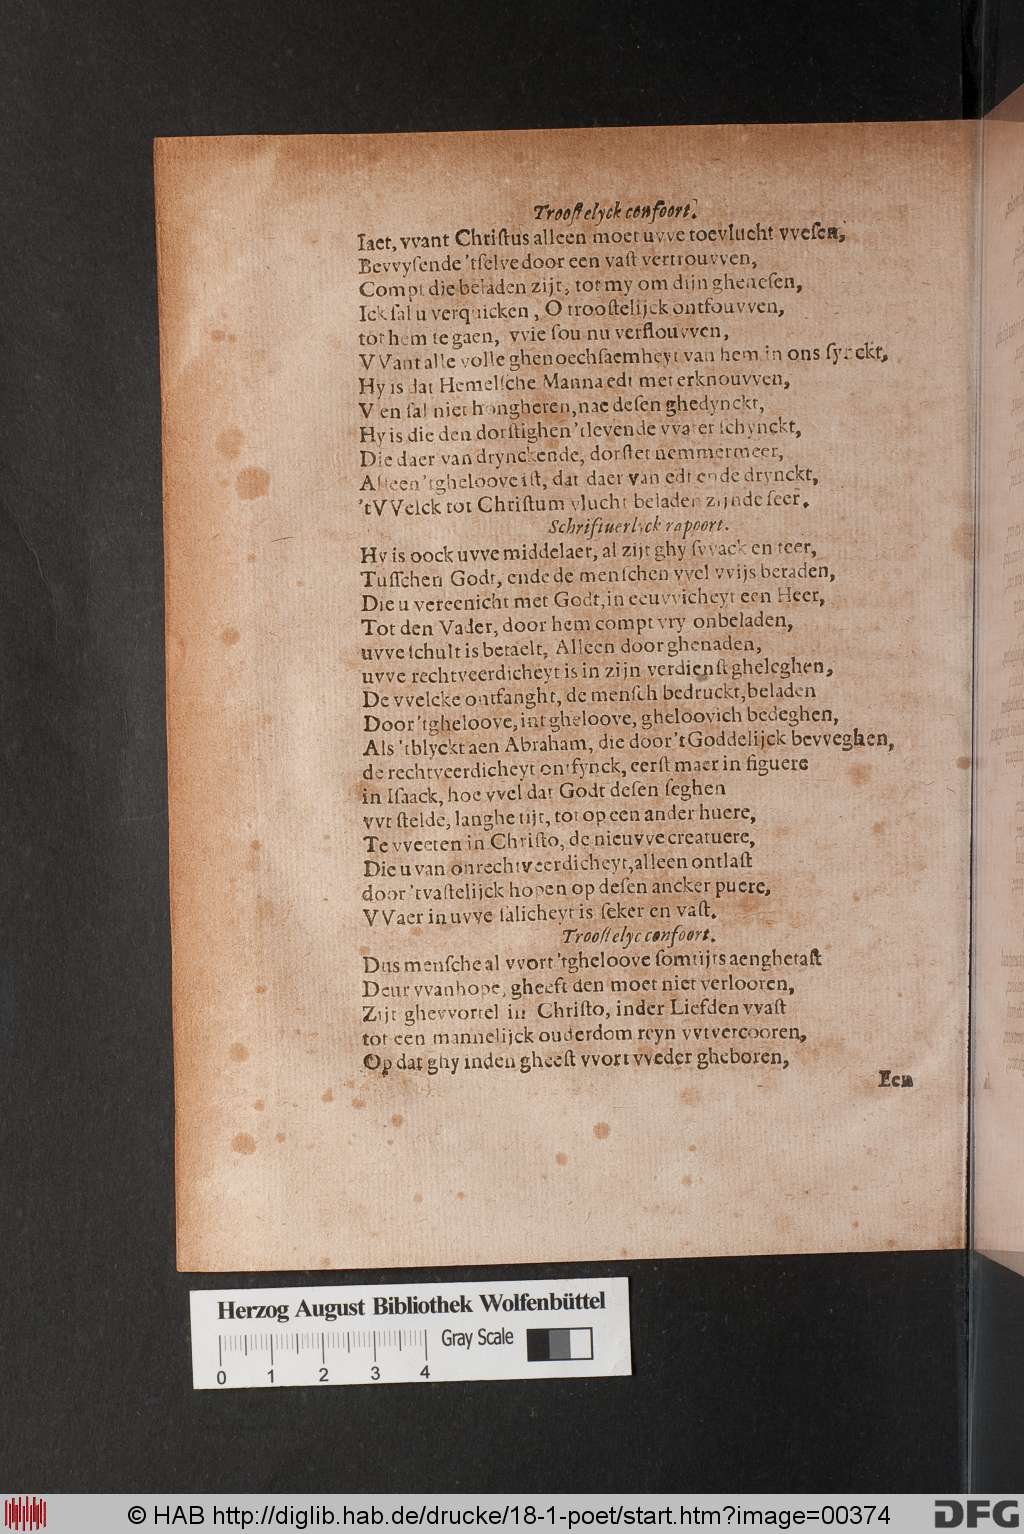 Trooſtelyck confoort.
Iaet, vvant Chriſtus alleen moet uvve toevlucht vveſen,
Bevvyſende 'tſelve door een vaſt vertrouvven,
Compt die beladen zijt, tot my om dijn gheneſen,
Ick ſal u verquicken, O trooſtelijck ontfouvven,
tot hem te gaen, vvie ſou nu verflouvven,
VVant alle volle ghenoechſaemheyt van hem in ons ſynckt,
Hy is dat Hemelſche Manna edt met erknouvven,
V en ſal niet hongheren, nae deſen ghedynckt,
Hy is die den dorſtighen 'tlevende vvater ſchynckt,
Die daer van drynckende, dorſtet nemmermeer,
Alleen 'tgheloove iſt, dat daer van edt ende drynckt,
'tVVelck tot Chriſtum vlucht beladen zijnde ſeer.
Schriftuerlyck rapoort.
Hy is oock uvve middelaer, al zijt ghy ſvvack en teer,
Tuſſchen Godt, ende de menſchen vvel vvijs beraden,
Die u vereenicht met Godt, in eeuvvicheyt een Heer,
Tot den Vader, door hem compt vry onbeladen,
uvve ſchult is betaelt, Alleen door ghenaden,
uvve rechtveerdicheyt is in zijn verdienſt gheleghen,
De vvelcke ontfanght, de menſch bedruckt, beladen
Door 'tgheloove, int gheloove, gheloovich bedeghen,
Als 'tblyckt aen Abraham, die door 't Goddelijck bevveghen,
de rechtveerdicheyt ontfynck, eerſt maer in figuere
in Iſaack, hoe vvel dat Godt deſen ſeghen
vvt ſtelde, langhe tijt, tot op een ander huere,
Te vveeten in Chriſto, de nieuvve creatuere,
Die u van onrechtveerdicheyt, alleen ontlaſt
door 'tvaſtelijck hopen op deſen ancker puere,
VVaer in uvve ſalicheyt is ſeker en vaſt.
Trooſtelyc confoort.
Dus menſche al vvort 'tgheloove ſomtijts aenghetaſt
Deur vvanhope, gheeft den moet niet verlooren,
Zijt ghevvortel in Chriſto, inder Liefden vvaſt
tot een mannelijck ouderdom reyn vvtvercooren,
Op dat ghy inden gheeſt vvort vveder gheboren,
Een
Herzog August Bibliothek Wolfenbüttel
Gray Scale
0 1 2 3 4
© HAB http://diglib.hab.de/drucke/18-1-poet/start.htm?image=00374
DFG